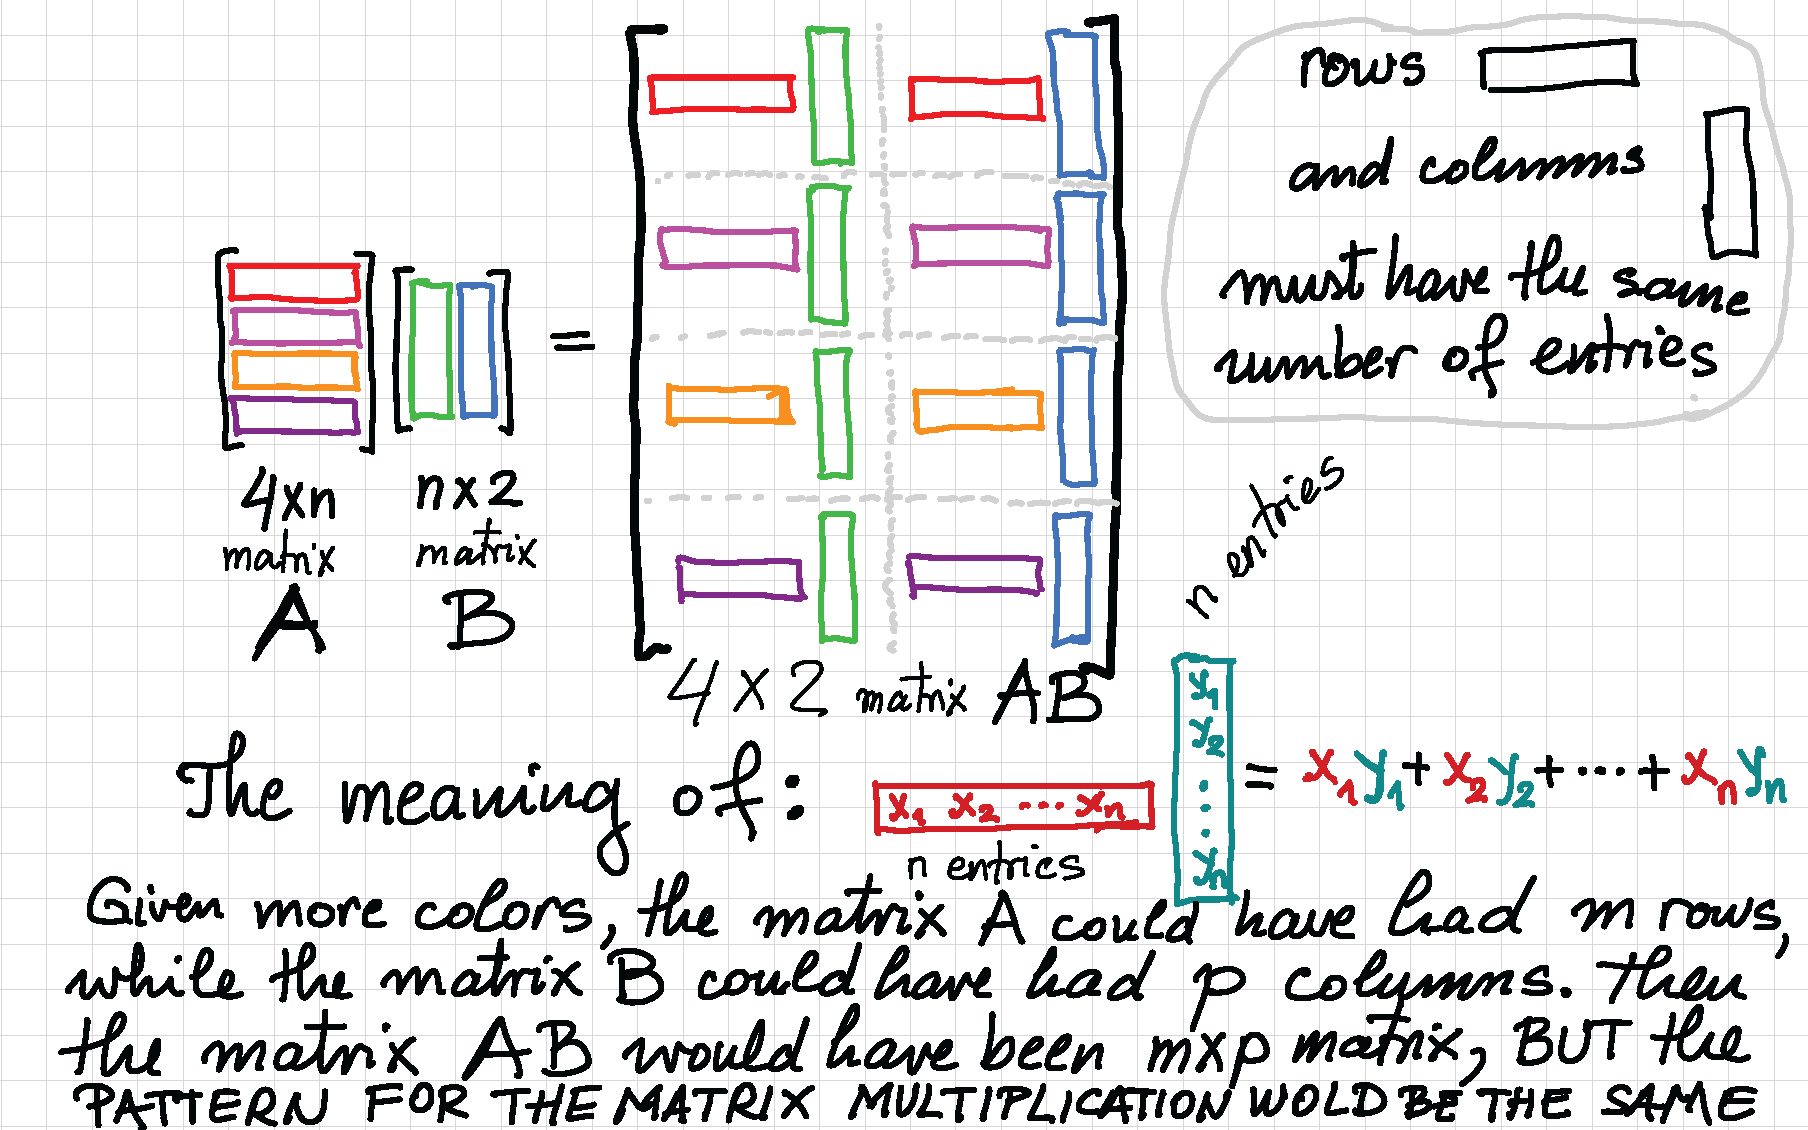 rows
and columns
must have the same
number of entries
=
4xn
matrix
A
nx2
matrix
B
4x2 matrix AB
n entries
The meaning of:
x₁ x₂ ... xₙ
n entries
y₁
y₂
⋮
yₙ
= x₁y₁ + x₂y₂ + ... + xₙyₙ
Given more colors, the matrix A could have had m rows,
while the matrix B could have had p columns. Then
the matrix AB would have been mxp matrix, BUT the
PATTERN FOR THE MATRIX MULTIPLICATION WOLD BE THE SAME